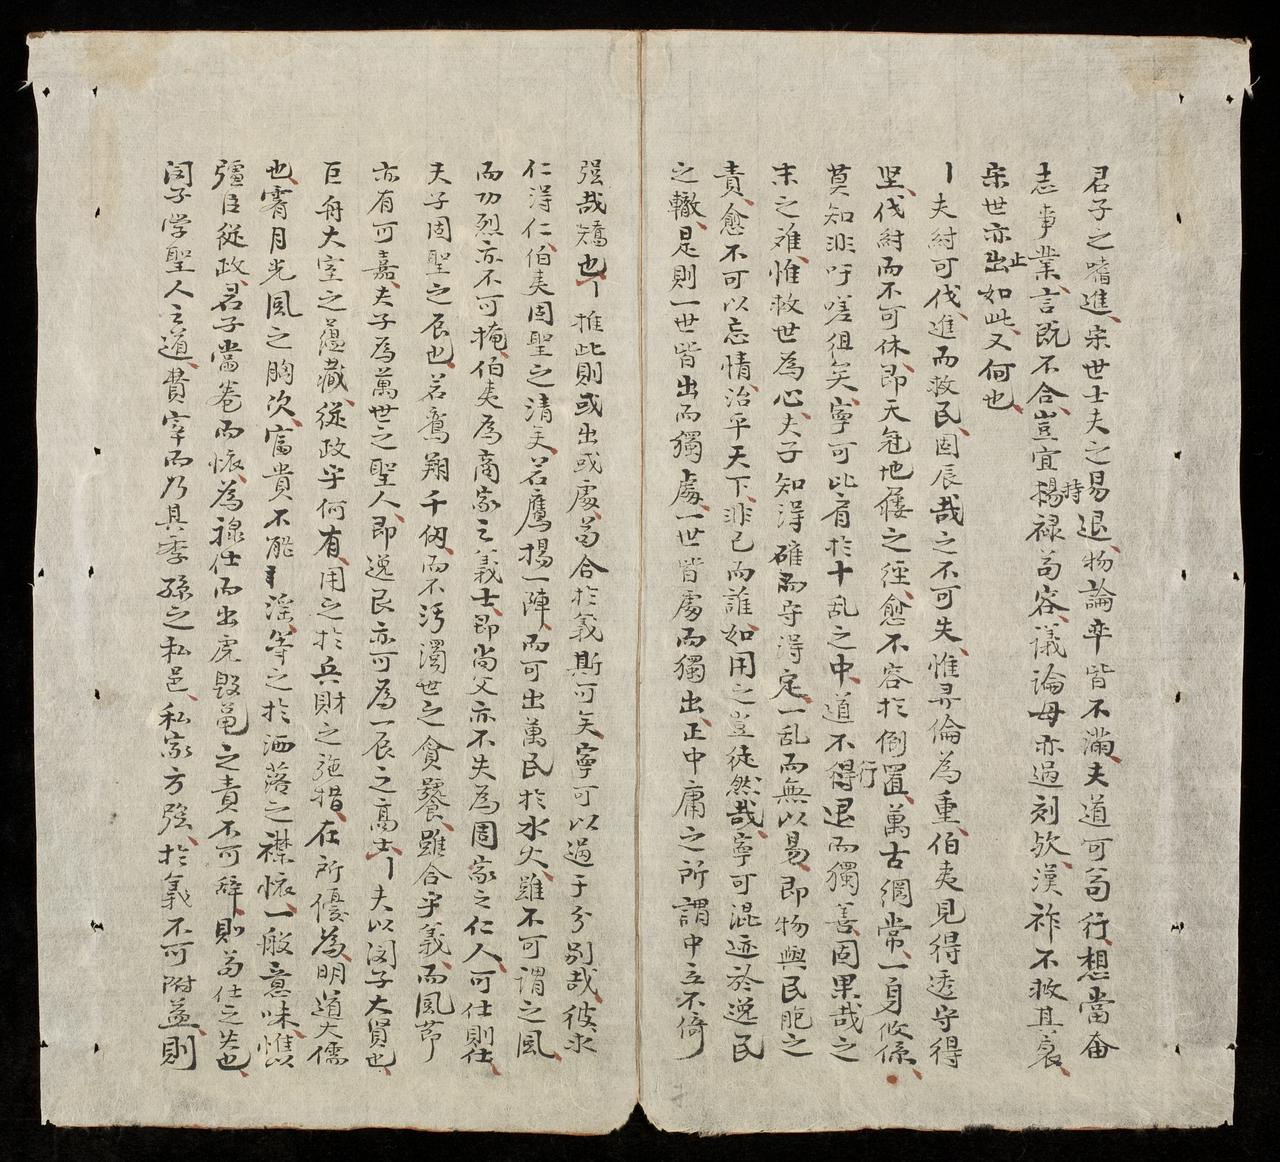 君子之嗜進、宋世士夫之易退、物論率皆不滿、夫道可苟行、想當奋
志事業、言既不合、豈宜揚持禄苟容、議論毋亦過刻欤、漢祚不救其衰、
宋世亦出止如此、又何也、
夫紂可伐、進而救民、固辰哉之不可失、惟彛倫為重、伯夷見得透守得
坚、伐紂而不可休、即天冠地屦之經、愈不容於倒置、萬古綱常、一身攸係、
莫知非吁嗟徂矣、寧可比肩於十乱之中、道不得行退而獨善、固果哉之
末之难、惟救世為心、夫子知得確而守得定、一乱而無以易、即物與民胞之
責、愈不可以忘情、治平天下、非己而誰、如用之豈徒然哉、寧可混迹於逸民
之轍、是則一世皆出而獨處、一世皆處而獨出、正中庸之所謂中立不倚
强哉矯也、推此則或出或處、苟合於義斯可矣、寧可以過于分別哉、彼求
仁得仁、伯夷固聖之清矣、若鷹揚一陣、而可出萬民於水火、雖不可謂之風、
而功烈亦不可掩、伯夷為商家之義士、即尚父亦不失為周家之仁人、可仕則仕、
夫子固聖之辰也、若鴦翔千仞、而不汚濁世之貪饕、雖合乎義、而風節
亦有可嘉、夫子為萬世之聖人、即逸民亦可為一辰之高士、夫以闵子大賢也、
巨舟大室之蘊藏、從政乎何有、用之於兵財之施措、在所優為、明道大儒
也、霽月光風之胸次、富貴不能淫、等之於洒落之襟懐、一般意味、惟
彊臣從政、君子當卷而懐、為禄仕而出、虎毁黾之責不可辞、則苟仕之失也、
闵子学聖人之道、費宰而乃具季孫之私邑、私家方强、於義不可附益、則